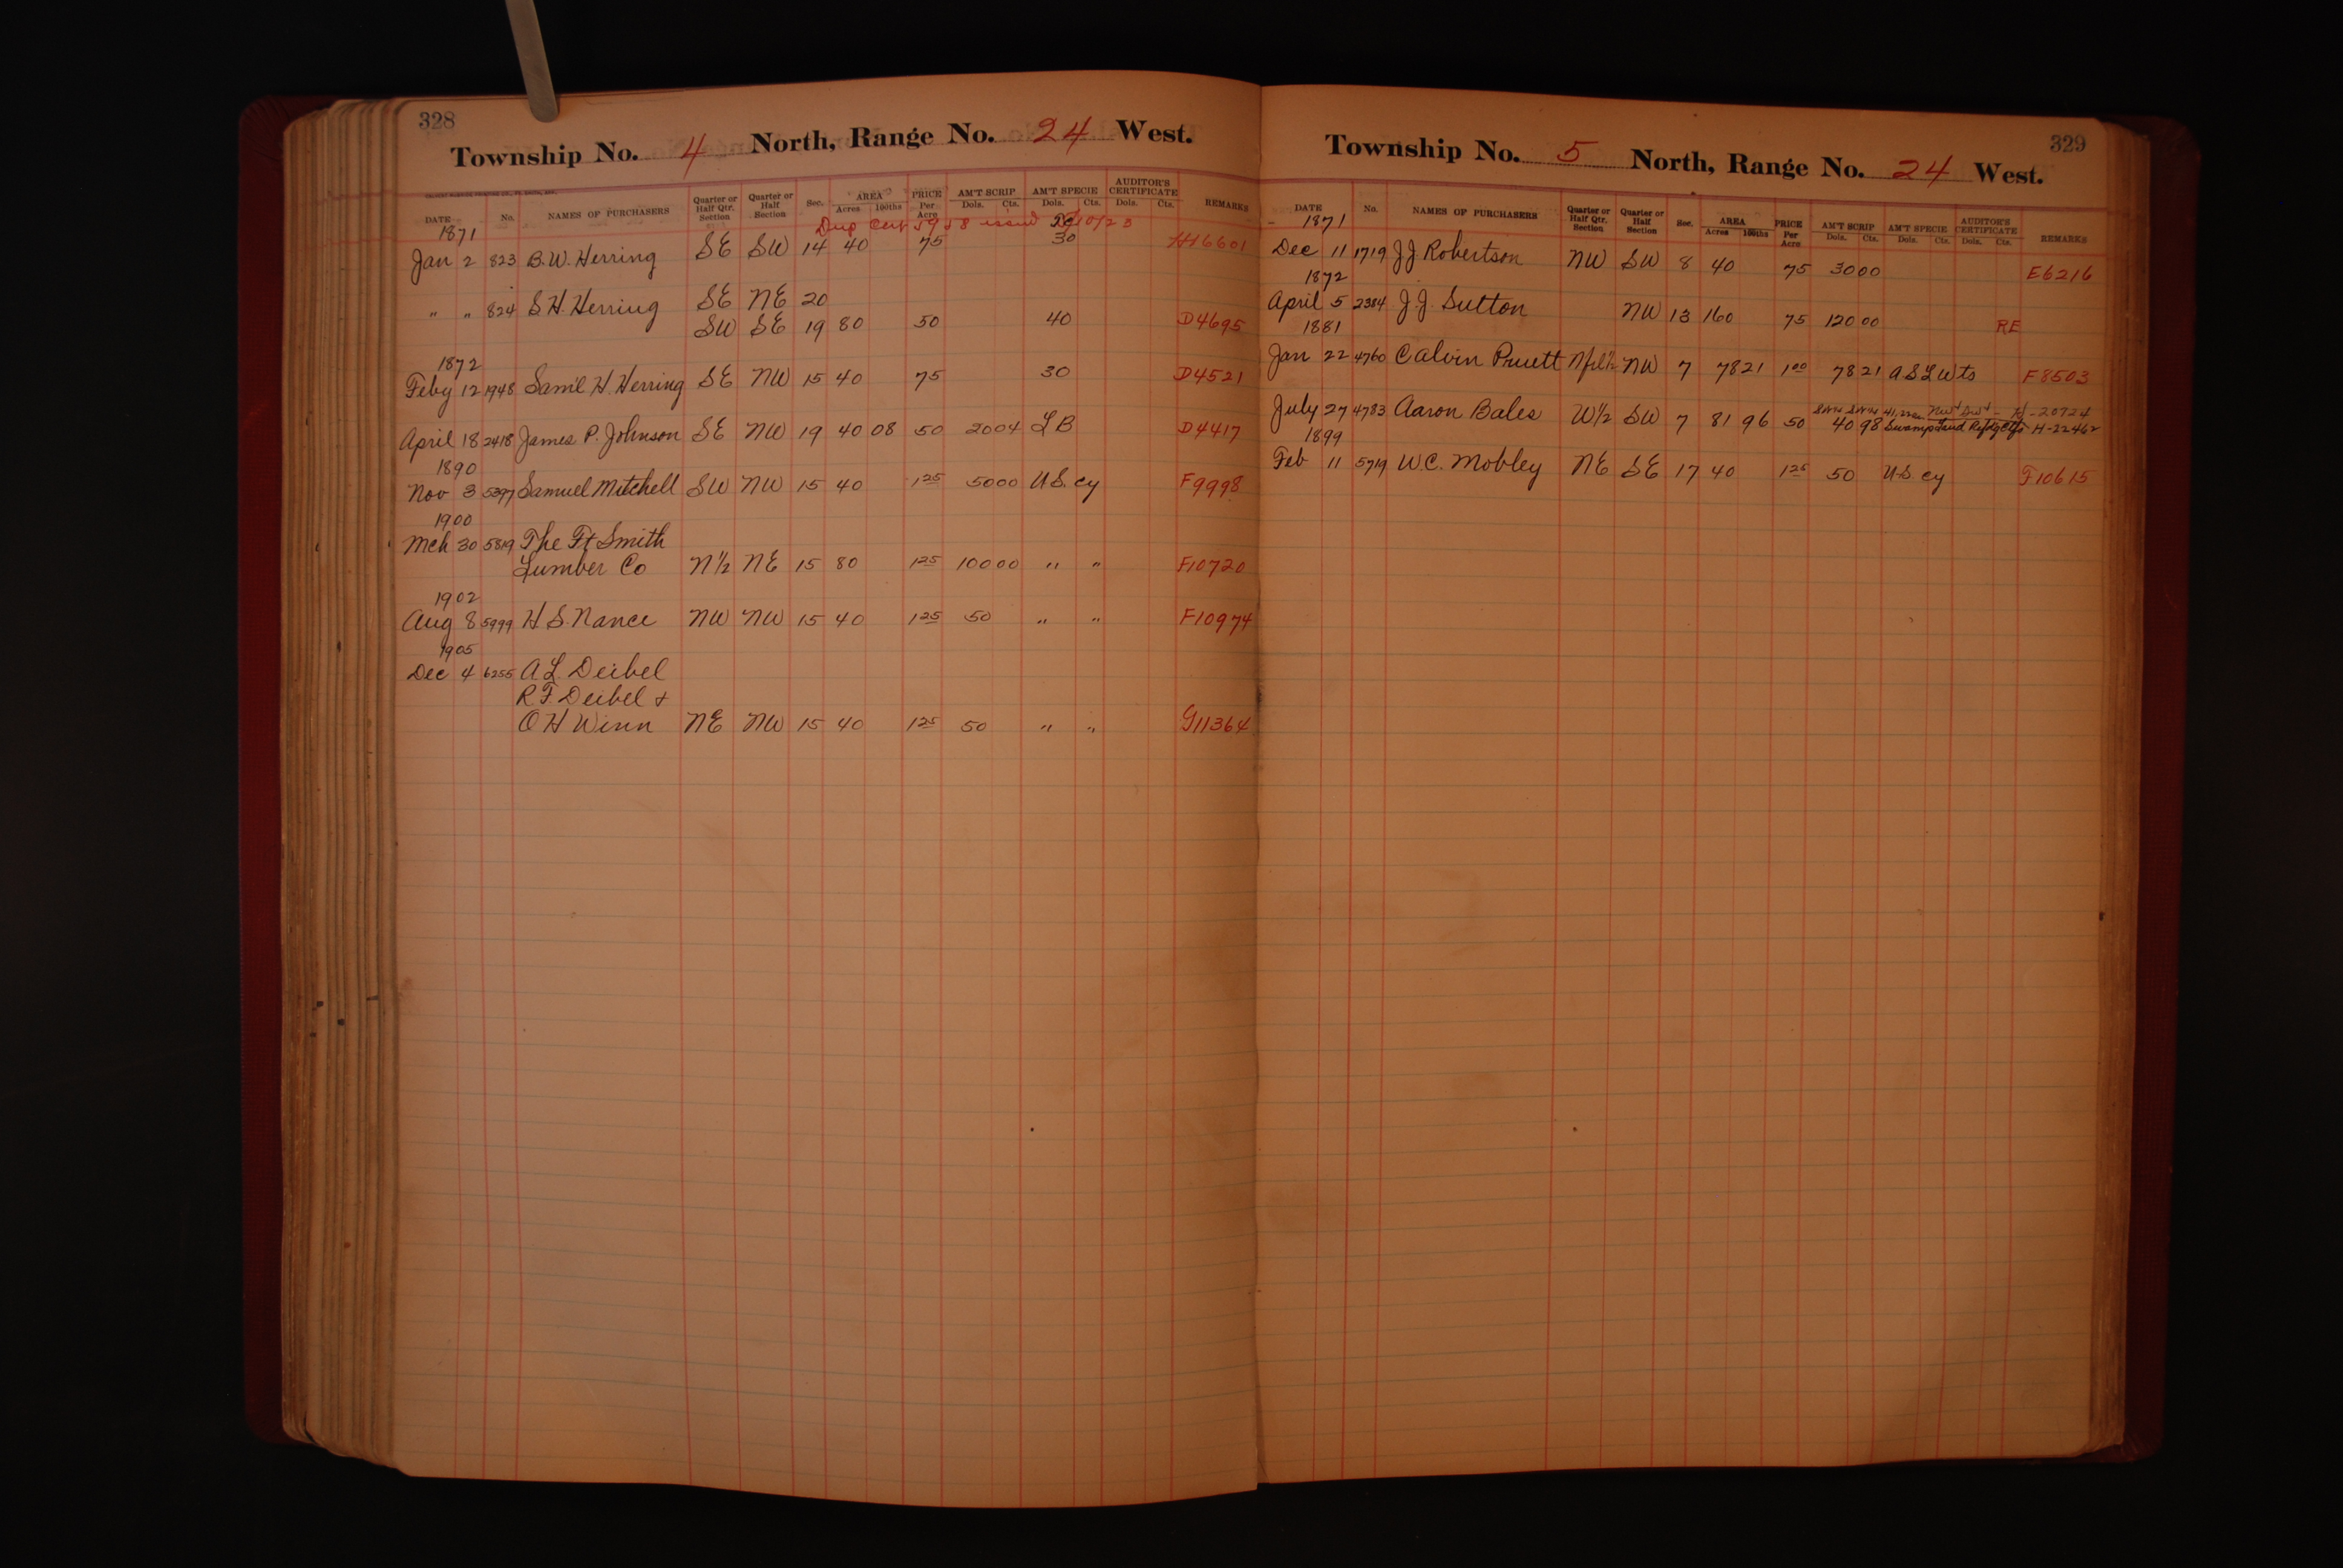 328
Township No. 4 North, Range No. 24 West.
DATE No. NAMES OF PURCHASERS Quarter or Half Qtr. Section Quarter or Half Section Sec. AREA Acres 100ths PRICE Per Acre AM'T SCRIP Dols. Cts. AM'T SPECIE Dols. Cts. AUDITOR'S CERTIFICATE Dols. Cts. REMARKS
Dup Cert 5958 issued 10/23
1871
Jan 2 823 B. W. Herring SE SW 14 40 75 30 H16601
" " 824 S. H. Herring SE NE 20
SW SE 19 80 50 40 D4695
1872
Feby 12 1948 Sam'l H. Herring SE NW 15 40 75 30 D4521
April 18 2418 James P. Johnson SE NW 19 40 08 50 20 04 L B D4417
1890
Nov 3 5397 Samuel Mitchell SW NW 15 40 1 25 50 00 U.S. cy F9998
1900
Mch 30 5819 The Ft Smith
Lumber Co N 1/2 NE 15 80 1 25 100 00 " " F10720
1902
Aug 8 5999 H. S. Nance NW NW 15 40 1 25 50 " " F10974
1905
Dec 4 6255 A L. Deibel
R F. Deibel +
O H Winn NE NW 15 40 1 25 50 " " G11364
329
Township No. 5 North, Range No. 24 West.
DATE No. NAMES OF PURCHASERS Quarter or Half Qtr. Section Quarter or Half Section Sec. AREA Acres 100ths PRICE Per Acre AM'T SCRIP Dols. Cts. AM'T SPECIE Dols. Cts. AUDITOR'S CERTIFICATE Dols. Cts. REMARKS
1871
Dec 11 1719 J J Robertson NW SW 8 40 75 30 00 E6216
1872
April 5 2384 J. J. Sutton NW 13 160 75 120 00 RE
1881
Jan 22 4760 Calvin Pruett N frl 1/2 NW 7 78 21 1 00 78 21 A S L Wts F8503
July 27 4783 Aaron Bales W 1/2 SW 7 81 96 50 40 98 Swamp Land H-22462
1899
Feb 11 5719 W. C. Mobley NE SE 17 40 1 25 50 U.S. cy F10615